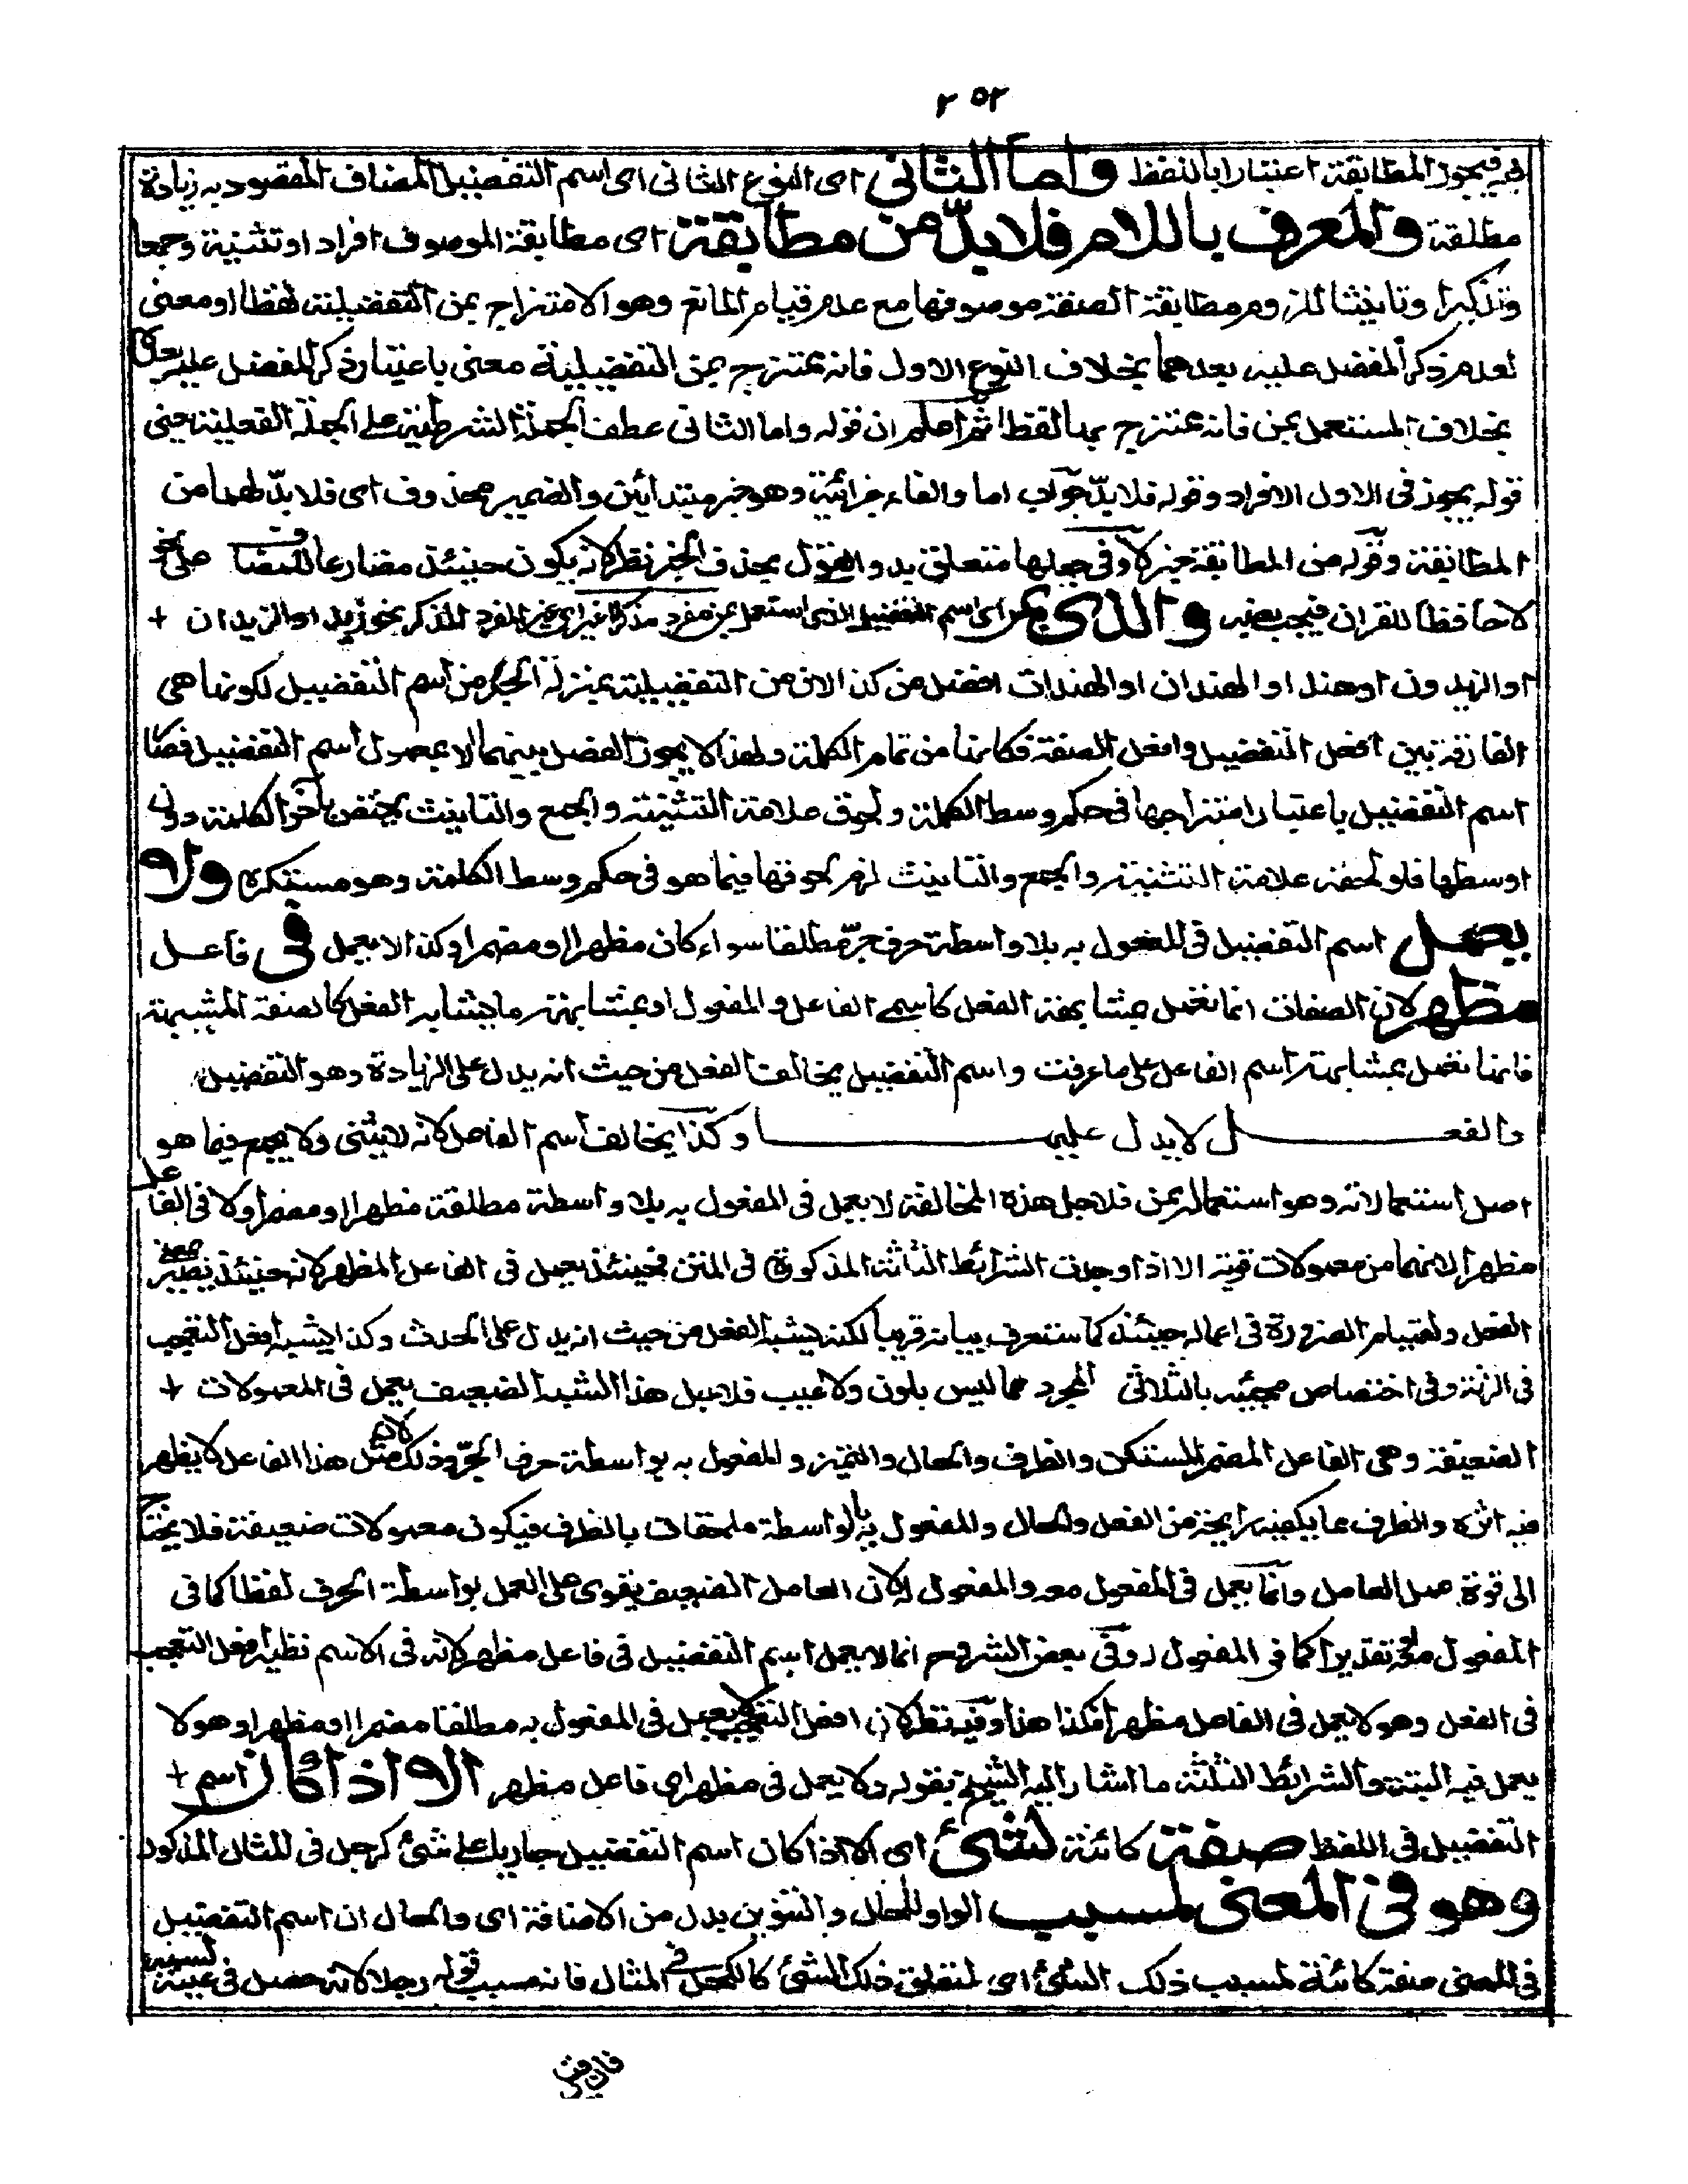 ٢٥٢
فيجوز المطابقة اعتبارا بالنفظ واما الثاني اى النوع الثانى اى اسم التفضيل المضاف المقصود به زيادة
مطلقة والمعرف باللام فلا بدّ من مطابقة اى مطابقة الموصوف افراد او تثنية وجمعا
وتذكيرا وتانيثا للزوم مطابقة الصفة موصوفها مع عدم قيام المانع وهو الامتزاج بمن التفضيلية لفظا او معنى
لعدم ذكر المفضل عليه بعدهما بخلاف النوع الاول فانه ممتزج بمن التفضيلية معنى باعتبار ذكر المفضل عليه
بخلاف المستعمل بمن فانه ممتزج بها لفظا ثم اعلم ان قوله واما الثانى عطف الجملة الشرطية على الجملة الفعلية يعنى
قوله يجوز فى الاول الافراد وقوله فلا بدّ جواب اما والفاء جزائية وهو خبر مبتدائين والضمير محذوف اى فلا بدّ لهما من
المطابقة وقوله من المطابقة خبر لا وفى جعلها متعلق بد والقول بحذف الخبر نظر لانه يكون حينئذ مضارعا للمضاف
لا حافظا للقران فيجب نصبه والذى بمن اى اسم التفضيل الذى استعمل بمن مفرد مذكر لا غير اى غير المفرد المذكر نحو زيد او الزيدان +
او الزيدون او هند او الهندان او الهندات افضل من كذا لان من التفضيلية بمنزلة الجزء من اسم التفضيل لكونها هى
الفارقة بين افعل التفضيل وافعل الصفة فكانها من تمام الكلمة ولهذا لا يجوز الفصل بينهما الا بمعمول اسم التفضيل فصار
اسم التفضيل باعتبار امتزاجها فى حكم وسط الكلمة ولحوق علامة التثنية والجمع والتانيث يختص بآخر الكلمة دون
اوسطها فلو لحقه علامة التثنية والجمع والتانيث لزم لحوقها فيما هو فى حكم وسط الكلمة وهو مستكره ولا
يعمل اسم التفضيل فى المفعول به بلا واسطة حرف جرّ مطلقا سواء كان مظهرا او مضمرا وكذا لا يعمل فى فاعل
مظهر لان الصفات انما تعمل بمشابهة الفعل كاسمى الفاعل والمفعول او بمشابهة ما يشابه الفعل كالصفة المشبهة
فانها تعمل بمشابهة اسم الفاعل على ما عرفت واسم التفضيل يخالف الفعل من حيث انه يدل على الزيادة وهو التفضيل
والفعل لا يدل عليه وكذا يخالف اسم الفاعل لانه لا يثنى ولا يجمع فيما هو
اصل استعمالاته وهو استعماله بمن فلاجل هذه المخالفة لا يعمل فى المفعول به بلا واسطة مطلقة مظهرا او مضمرا ولا فى الفاعل
مظهرا لانهما من معمولات قوية الا اذا وجدت الشرائط الثلثة المذكورة فى المتن فحينئذ يعمل فى الفاعل المظهر لانه حينئذ يصير بمعنى
الفعل ولقيام الضرورة فى اعماله حينئذ كما ستعرف بيانه قريبا لكنه يشبه الفعل من حيث انه يدل على الحدث وكذا يشبه افعل التعجب
فى الزنة وفى اختصاص مجيئه بالثلاثى المجرد مما ليس بلون ولا عيب فلاجل هذا الشبه الضعيف يعمل فى المعمولات +
الضعيفة وهى الفاعل المضمر المستكن والظرف والحال والتميز والمفعول به بواسطة حرف الجرّ وذلك لان مثل هذا الفاعل لا يظهر
فيه اثره والظرف مما يكفيه رايحة من الفعل والحال والمفعول به بالواسطة ملحقات بالظرف فيكون معمولات ضعيفة فلا يحتاج
الى قوة عمل العامل وانما يعمل فى المفعول معه والمفعول له لان العامل الضعيف يقوى على العمل بواسطة الحرف لفظا كما فى
المفعول معه او تقديرا كما فى المفعول له وفى بعض الشروح انما لا يعمل اسم التفضيل فى فاعل مظهر لانه فى الاسم نظير افعل التعجب
فى الفعل وهو لا يعمل فى الفاعل مظهرا فكذا هذا وفيه نظر لان افعل التعجب يعمل فى المفعول به مطلقا مضمرا او مظهرا وهو لا
يعمل فيه البتة والشرائط الثلثة ما اشار اليه الشيخ بقوله ولا يعمل فى مظهر اى فاعل مظهر الا اذا كان اسم +
التفضيل فى اللفظ صفة كائنة لشئ اى الا اذا كان اسم التفضيل جاريا على شئ كرجل فى المثال المذكور
وهو فى المعنى لمسبب الواو للحال والتنوين بدل من الاضافة اى والحال ان اسم التفضيل
فى المعنى صفة كائنة لمسبب ذلك الشئ اى لمتعلق ذلك الشئ كالكحل فى المثال فانه مسبب قوله رجلا لانه حصل فى عينه